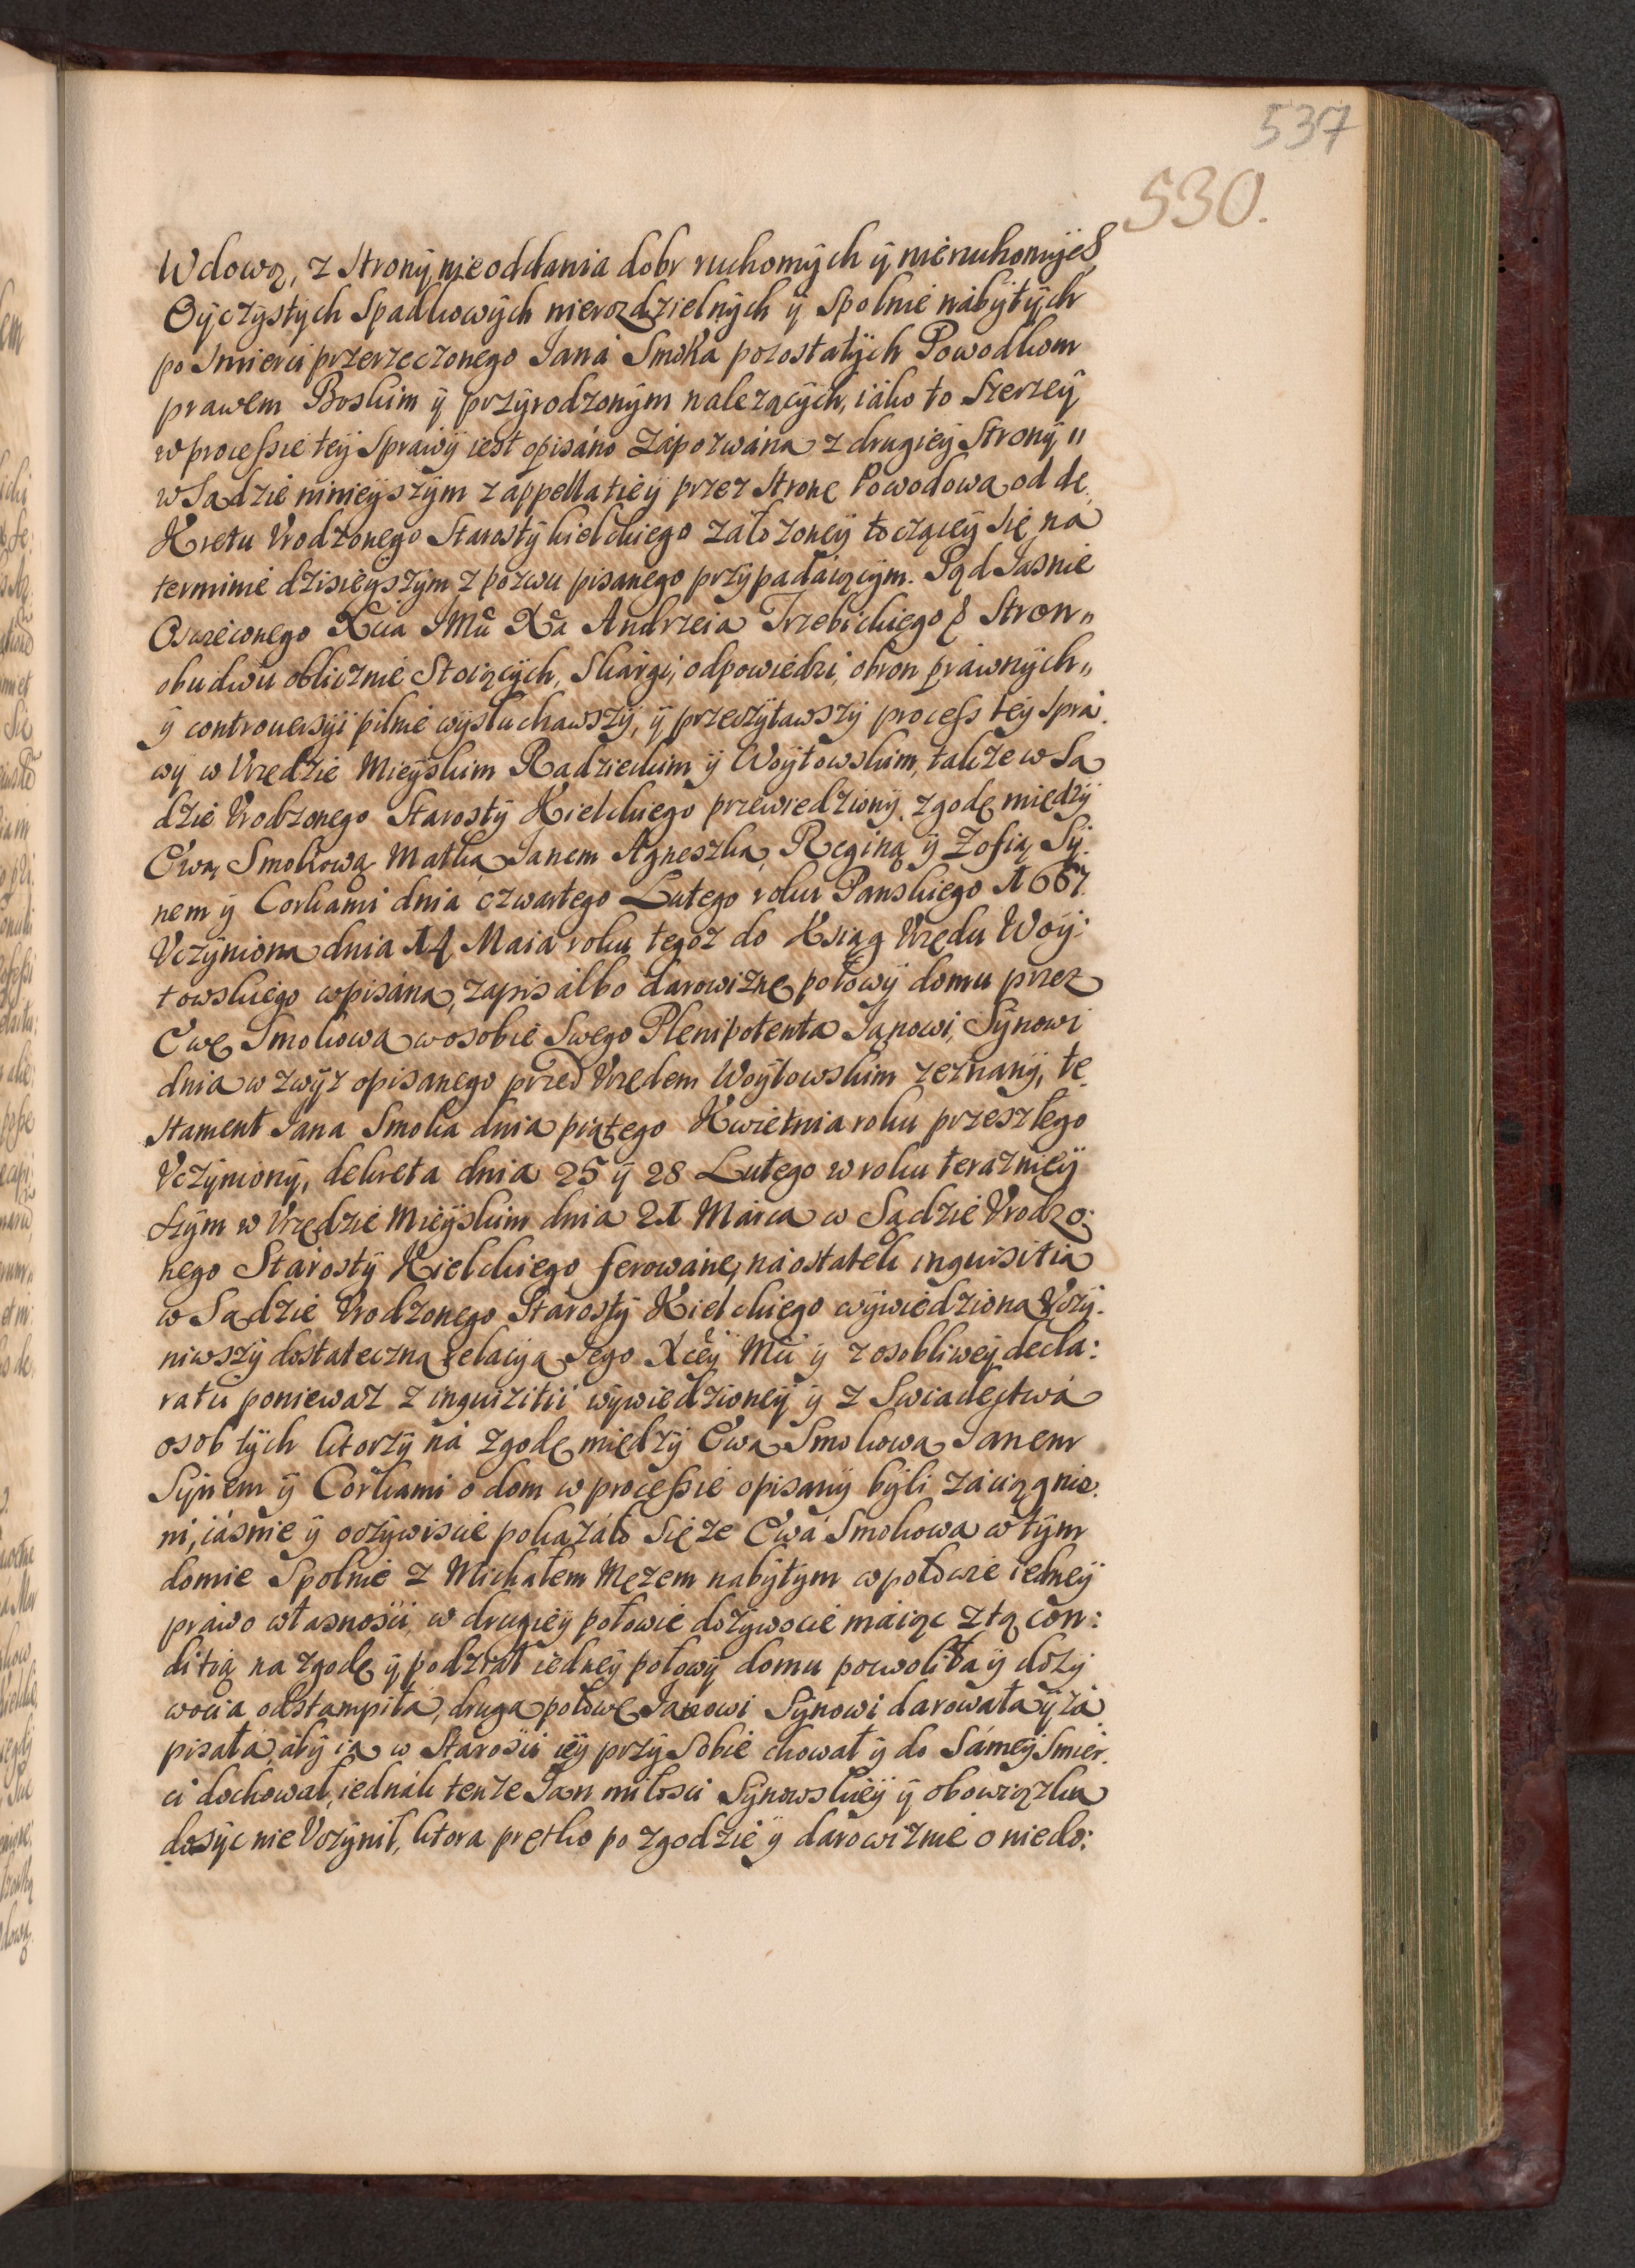 537
530.
Wdową, z Strony nieoddania dobr ruchomych y nieruchomych
Oyczystych Spadkowych nierozdzielnych y spolnie nabytych
po smierci przerzeczonego Jana Smoka pozostałych Powodkom
prawem Boskim y przyrodzonym nalezących, iako to szerzey
w processie tey sprawy iest opisano zapozwaną z drugiey Strony
w Sądzie ninieyszym z appellatiey przez Stronę Powodową od de
Kretu Vrodzonego Starosty kielckiego założoney toczącey się na
terminie dzisieyszym z pozwu pisanego przypadaiącym. Sąd Jasnie
Oswieconego Xcia JMci Xa Andrzeia Trzebickiego & Stron
obudwu oblicznie Stoiących, Skargi, odpowiedzi, obron prawnych
y controuersyi pilnie wysłuchawszy, y przeczytawszy process tey spra
wy w Vrzędzie Mieyskim Radzieckim y Woytowskim, także w Są
dzie Vrodzonego Starosty Kielckiego przewiedziony, zgodę między
Ewą Smokową Matką Janem Agneszką, Reginą y Zofią Sy
nem y Corkami dnia czwartego Lutego roku Panskiego 1667
Vczynioną dnia 14 Maia roku tegoż do Ksiąg Vrzędu Woy:
towskiego wpisaną, zapis albo darowiznę połowy domu przez
Ewę Smokową w osobie Swego Plenipotenta Janowi, Synowi
dnia w zwyż opisanego przed Vrzędem Woytowskim zeznany, te
stament Jana Smoka dnia piątego Kwietnia roku przeszłego
Vczyniony, dekreta dnia 25 y 28 Lutego w roku teraznieÿ
szym w Vrzędzie Mieyskim dnia 21 Marca w Sądzie Vrodzo:
nego Starosty Kielckiego ferowane, na ostatek inquisitią
w Sądzie Vrodzonego Starosty Kielckiego wywiedzioną Vczy
niwszy dostateczną relacyą Jego Xcey Mci y z osobliwey decla:
ratii ponieważ z inquizitii wywiedzioney y z Swiadectwa
osob tych ktorzy na zgodę między Ewą Smokową Janem
Synem y Corkami o dom w processie opisany byli zaciągnie
ni, iasnie y oczywiscie pokazało się że Ewa Smokowa w tym
domie Spolnie z Michałem Mężem nabytym w połowie iedney
prawo własności, w drugiey połowie dożywocie maiąc z tą con:
ditią na zgodę y podział iedney połowy domu pozwoliła y doży
wocia odstampiła, drugą połowę Janowi Synowi darowała y za
pisała, aby ią w Starosci iey przy Sobie chował y do Samey Smier
ci dochował, iednak tenże Jan miłosci Synowskiey y obowiązku
dosyc nie Vczynił, ktora prętko po zgodzie y darowiznie o niedo: